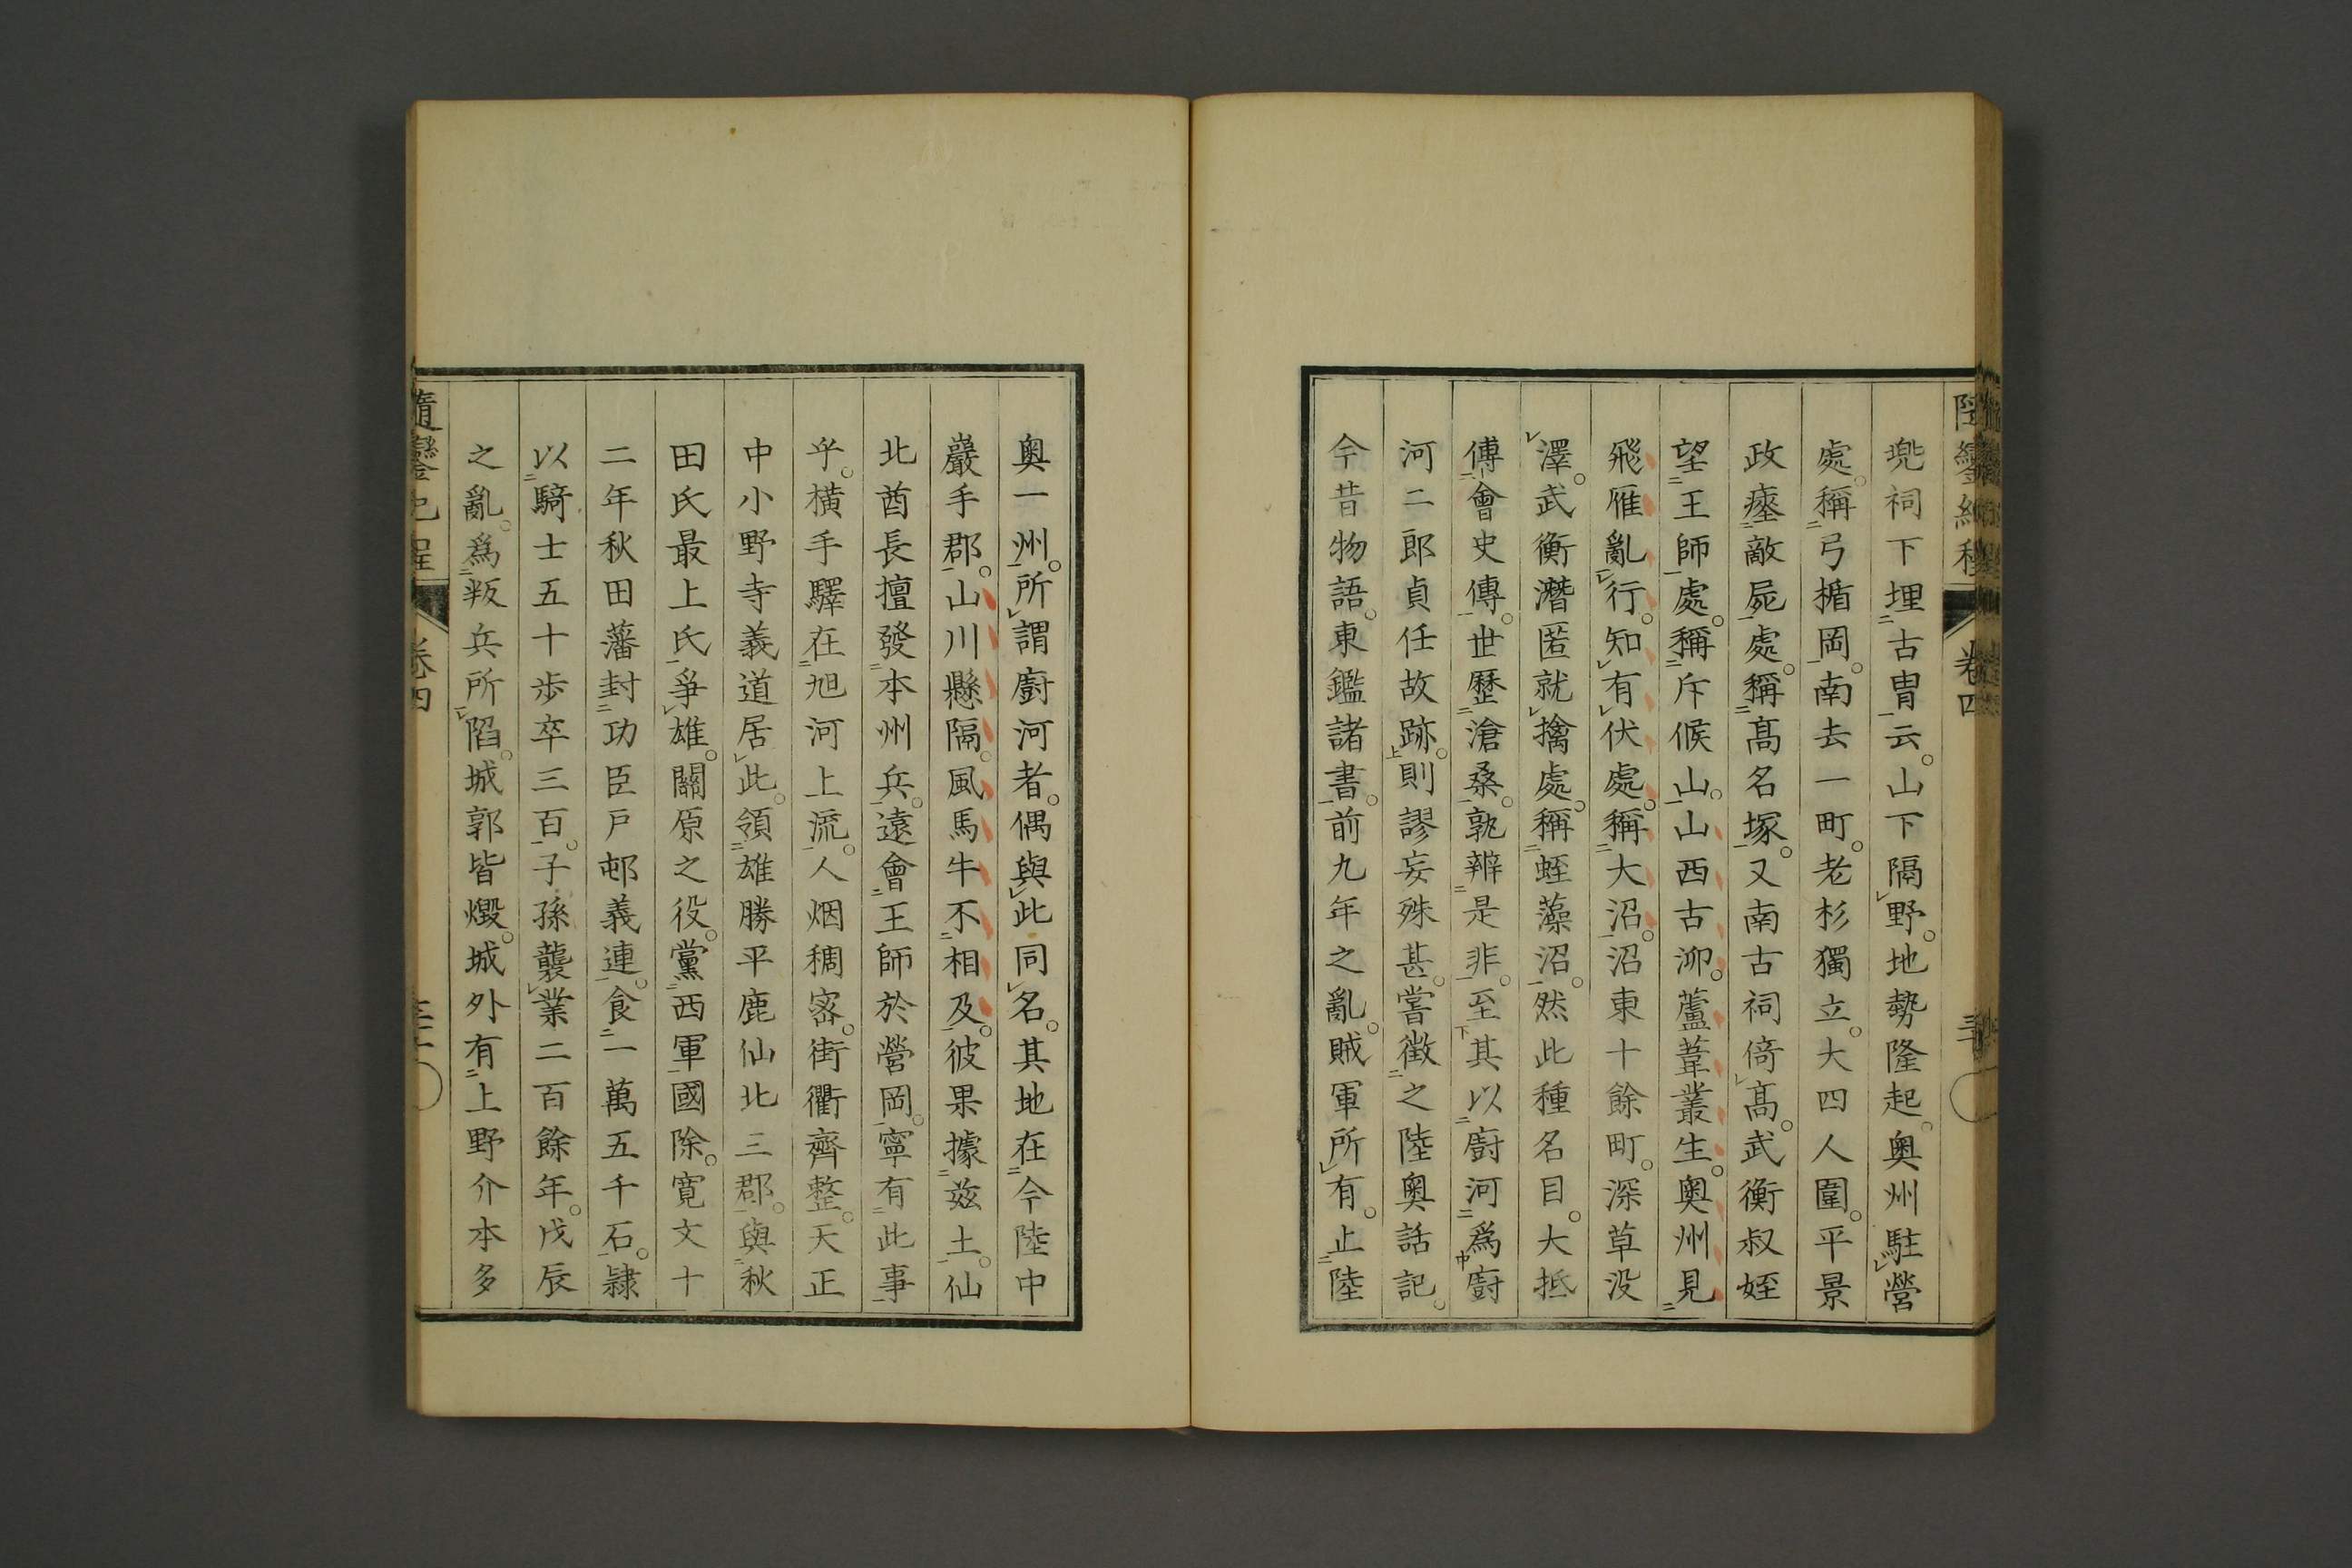 兠祠下埋古冑云。山下隔野。地勢隆起。奥州駐營
處。稱弓楯岡。南去一町。老杉獨立。大四人圍。平景
政瘞敵屍處。稱髙名塚。又南古祠倚髙。武衡叔姪
望王師處。稱斥候山。山西古泖。蘆葦叢生。奥州見
飛雁亂行。知有伏處。稱大沼。沼東十餘町。深草没
澤。武衡潛匿就擒處。稱蛭藻沼。然此種名目。大抵
傅會史傳。世歷滄桑。孰辨是非。至其以廚河爲廚
河二郎貞任故跡。則謬妄殊甚。嘗徵之陸奥話記。
今昔物語。東鑑諸書。前九年之亂。賊軍所有。止陸
奥一州。所謂廚河者。偶與此同名。其地在今陸中
巖手郡。山川懸隔。風馬牛不相及。彼果據茲土。仙
北酋長擅發本州兵。遠會王師於營岡。寧有此事
乎。橫手驛在旭河上流。人烟稠密。街衢齊整。天正
中小野寺義道居此。領雄勝平鹿仙北三郡。與秋
田氏最上氏爭雄。關原之役。黨西軍國除。寬文十
二年秋田藩封功臣戸邨義連。食一萬五千石。隷
以騎士五十歩卒三百。子孫襲業二百餘年。戊辰
之亂。爲叛兵所陷。城郭皆燬。城外有上野介本多
隨鑾紀程 卷四